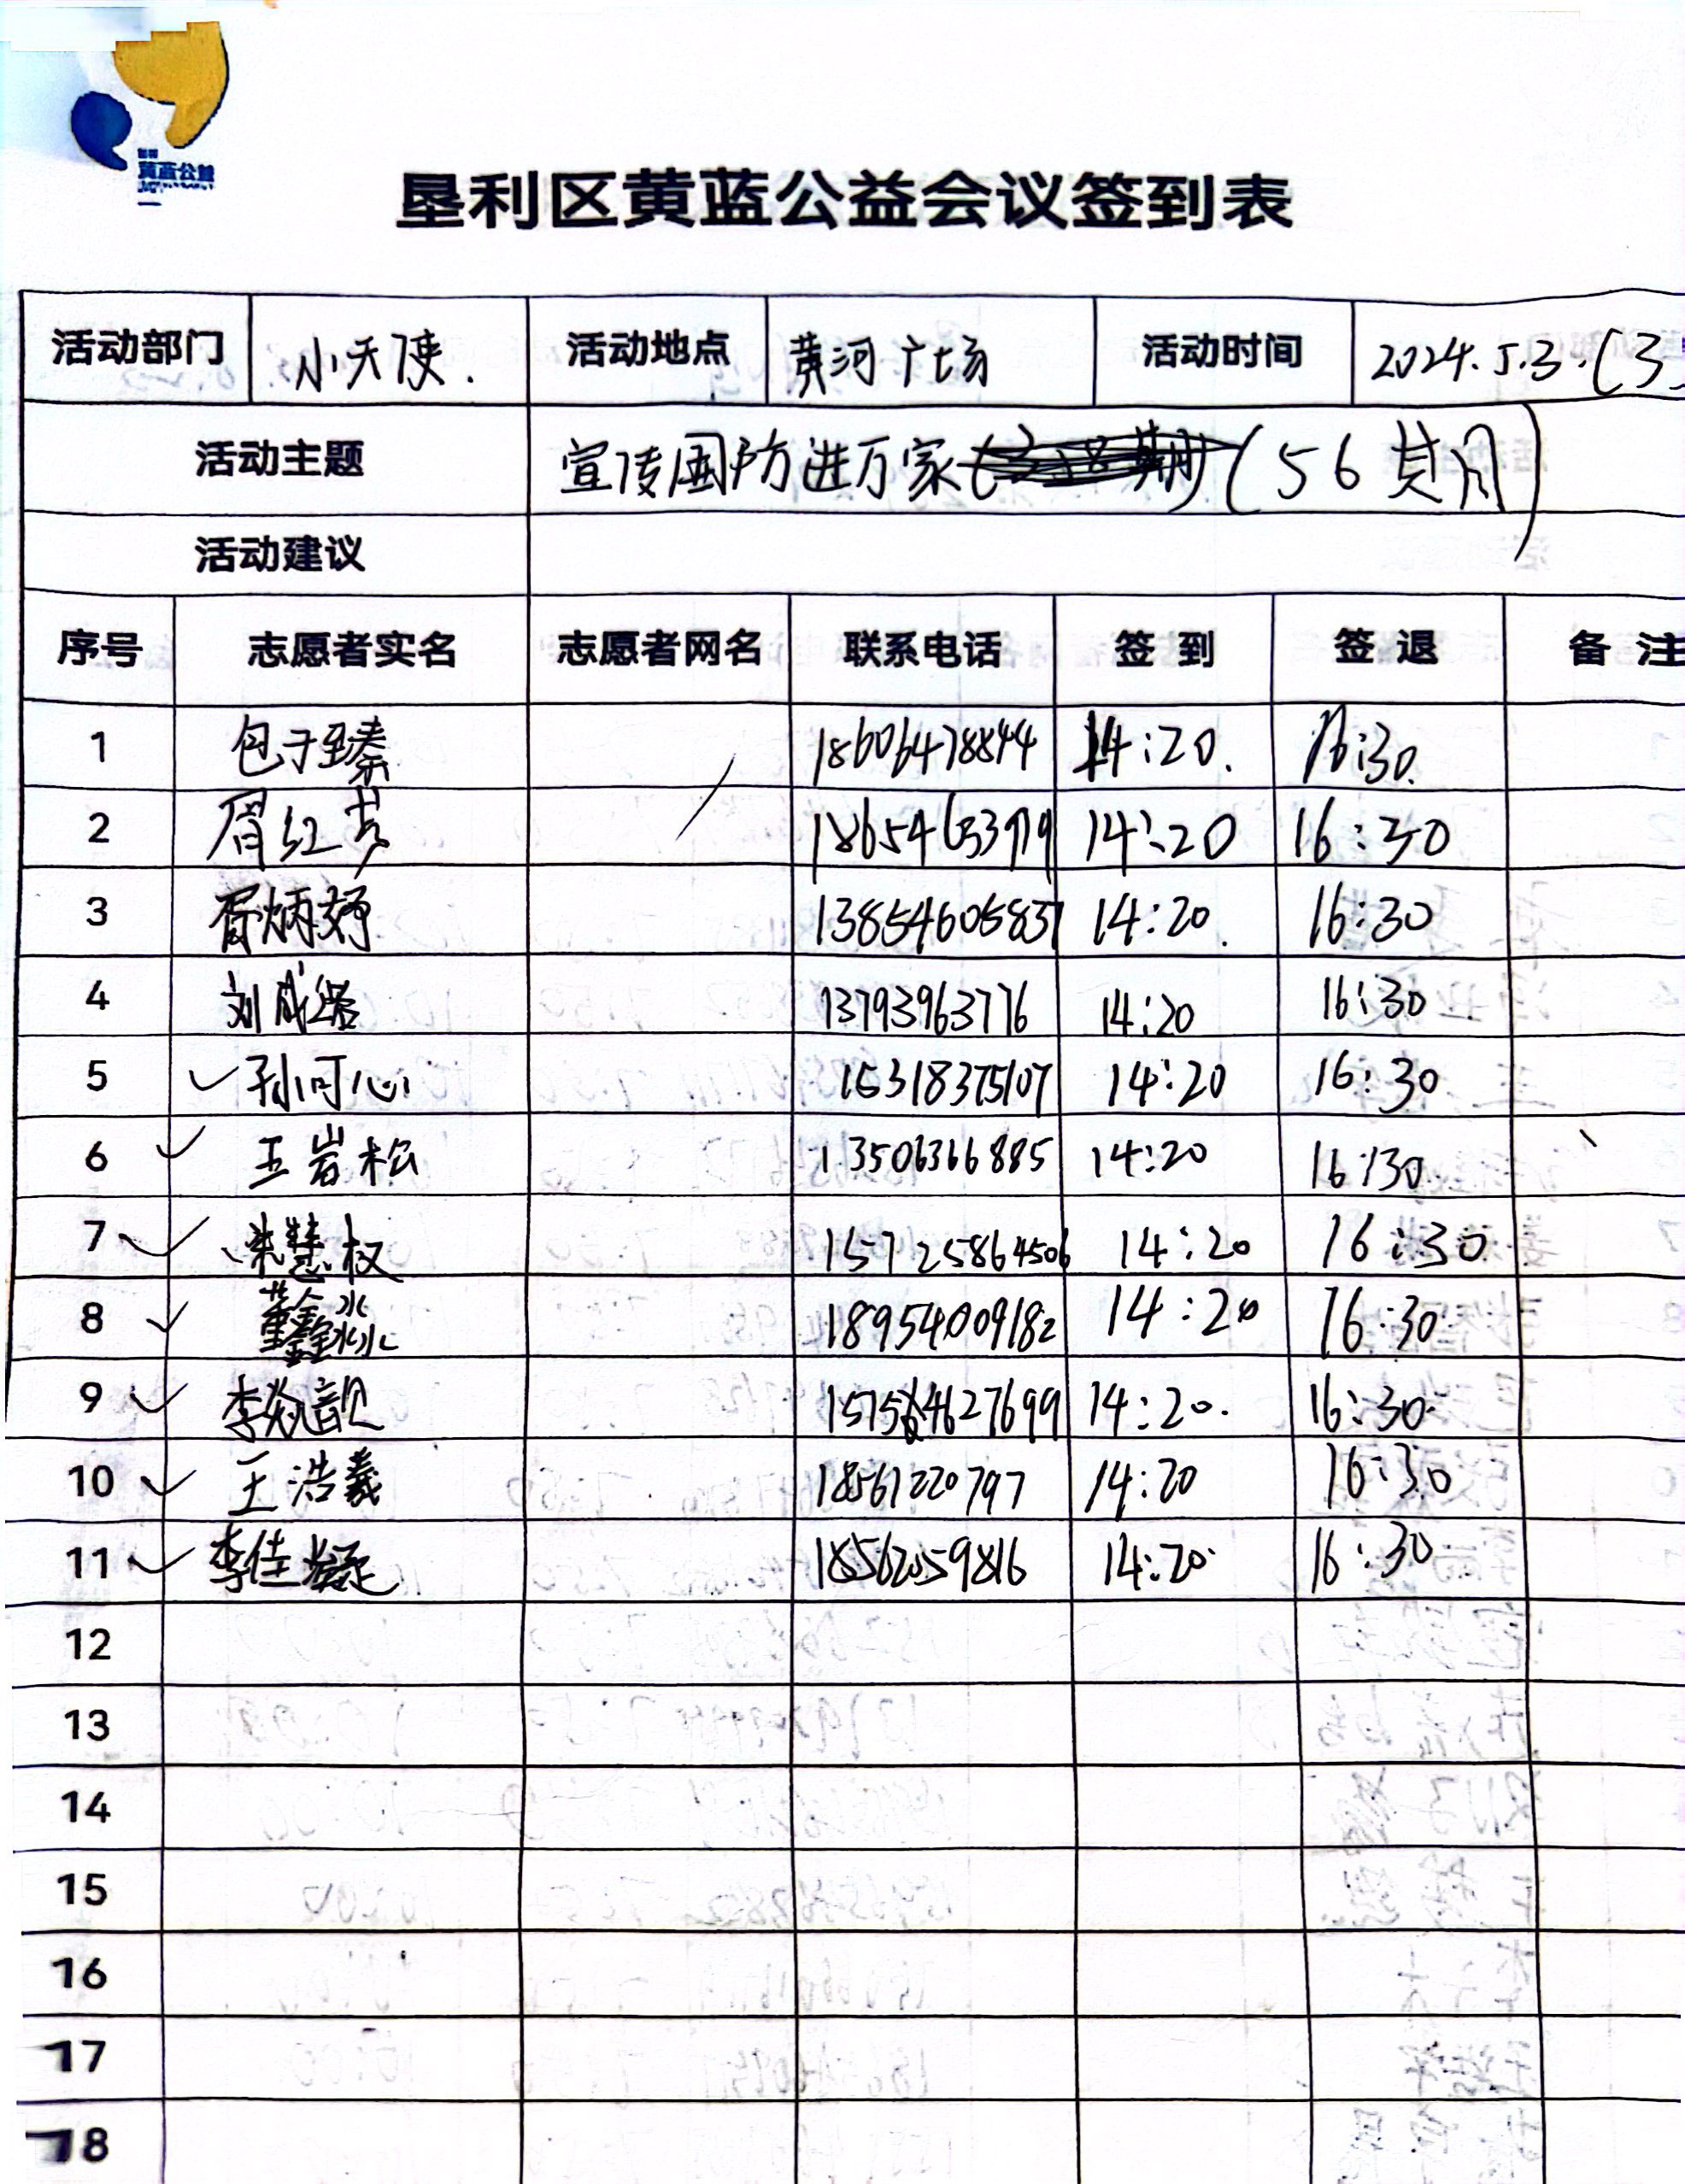 黄蓝公益
垦利区黄蓝公益会议签到表
活动部门 小天使. 活动地点 黄河广场 活动时间 2024.5.3.(3
活动主题 宣传国防进万家 (56 期)
活动建议
序号 志愿者实名 志愿者网名 联系电话 签到 签退 备注
1 包于臻 18606478844 14:20. 16:30.
2 胥红芳 14:20 16:30
3 胥炳妤 13854605837 14:20. 16:30
4 刘成璐 13793963776 14:20 16:30
5 ✓ 孙可心 15318375107 14:20 16:30
6 ✓ 王岩松 13506366885 14:20 16:30
7 ✓ 朱慧权 15725864506 14:20 16:30
8 ✓ 董鑫淼 18954009182 14:20 16:30
9 ✓ 李 14:20. 16:30
10 ✓ 王浩羲 18561220797 14:20 16:30
11 ✓ 李佳凝 18562059816 14:20 16:30
12
13
14
15
16
17
18